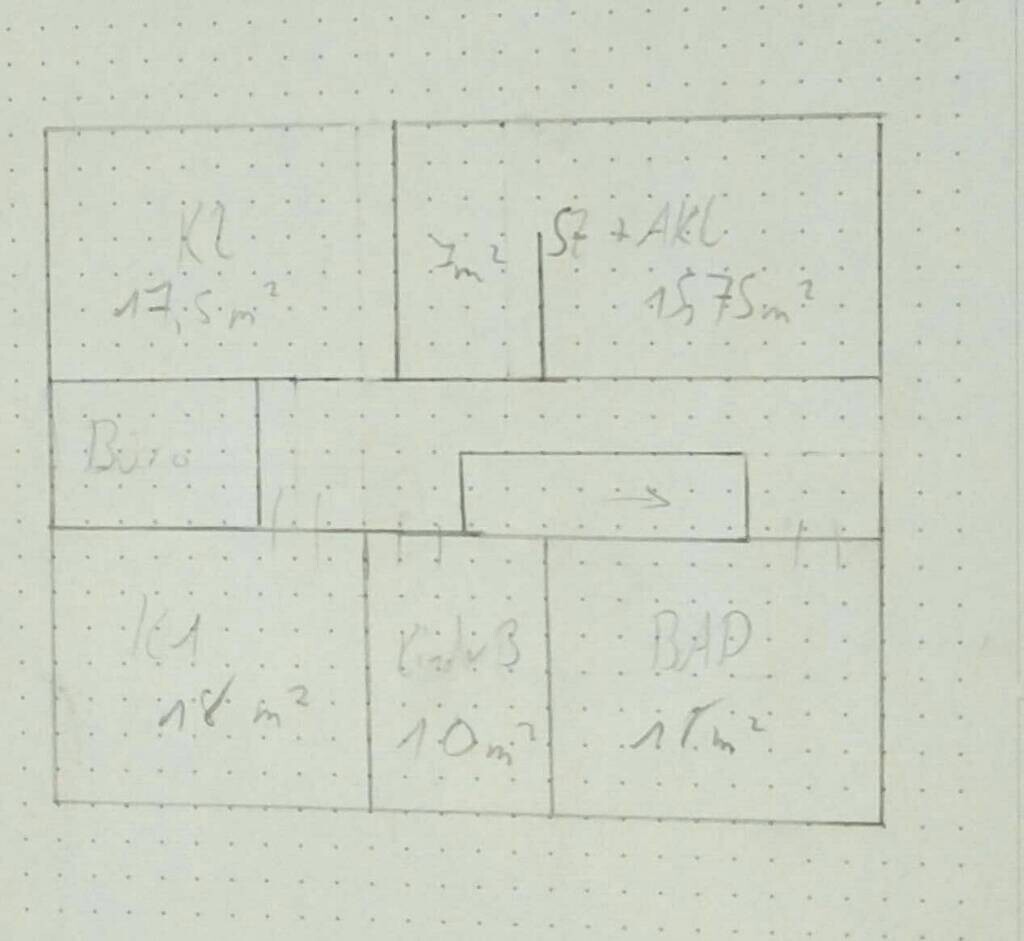 K2
17,5 m²
7m²
SZ + AKL
15,75m²
Büro
K1
18 m²
KinderB
10m²
BAD
m²